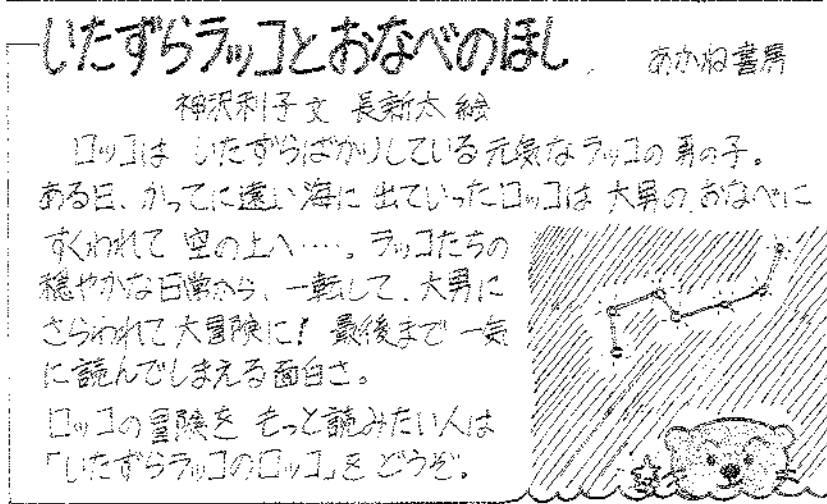 いたずらラッコとおなべのほし あかね書房
神沢利子 文 長新太 絵
ロッコは いたずらばかりしている元気なラッコの男の子。
ある日、かってに遠い海に出ていったロッコは大男のおなべに
すくわれて空の上へ…。ラッコたちの
穏やかな日常から、一転して、大男に
さらわれて大冒険に! 最後まで一気
に読んでしまえる面白さ。
ロッコの冒険を もっと読みたい人は
「いたずらラッコのロッコ」を どうぞ。